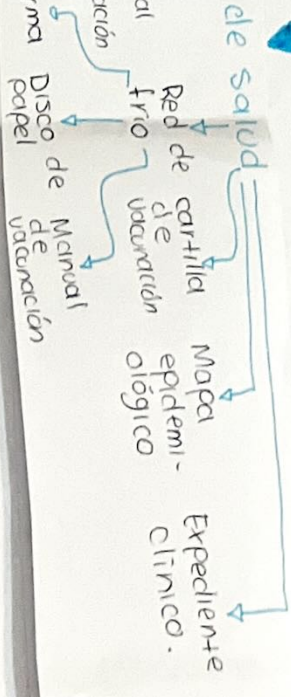 de salud
Red de
frío
cartilla
de
vacunación
Mapa
epidemi-
ológico
Expediente
clínico.
al
ación
ma
Disco de
papel
Manual
de
vacunación